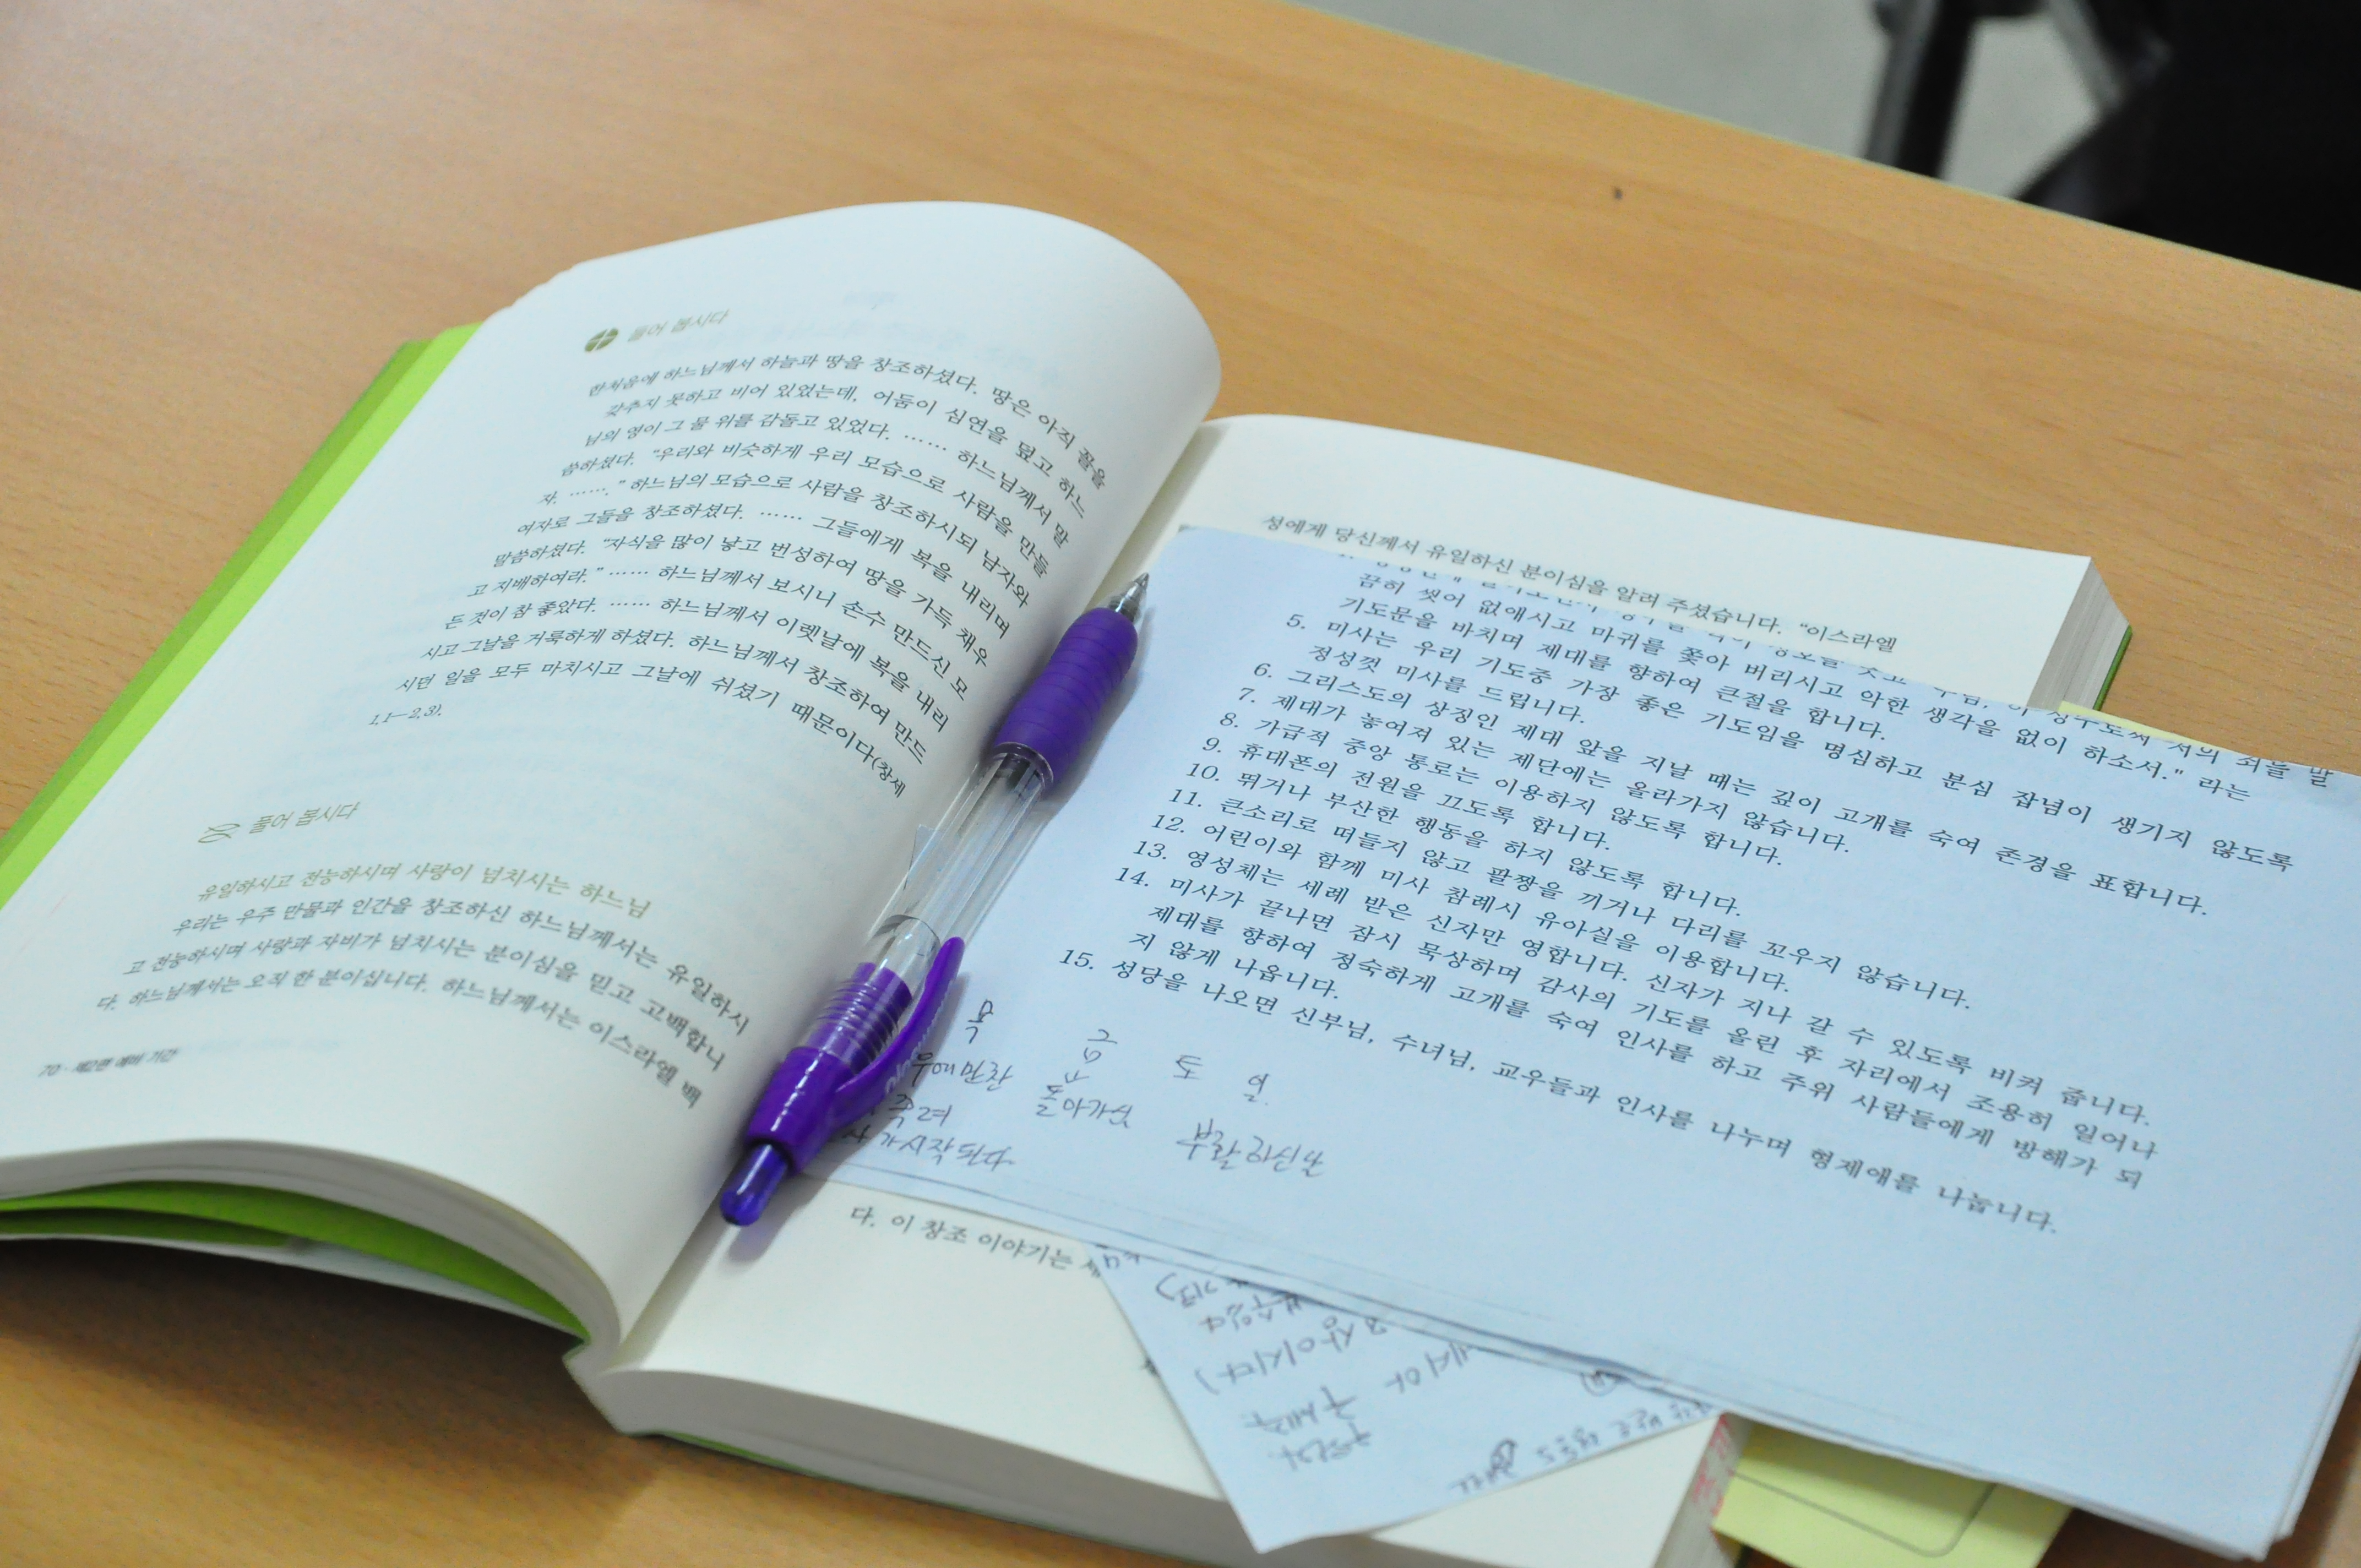 들어 봅시다
한처음에 하느님께서 하늘과 땅을 창조하셨다. 땅은 아직 꼴을
갖추지 못하고 비어 있었는데, 어둠이 심연을 덮고 하느
님의 영이 그 물 위를 감돌고 있었다. …… 하느님께서 말
씀하셨다. “우리와 비슷하게 우리 모습으로 사람을 만들
자. …….” 하느님의 모습으로 사람을 창조하시되 남자와
여자로 그들을 창조하셨다. …… 그들에게 복을 내리며
말씀하셨다. “자식을 많이 낳고 번성하여 땅을 가득 채우
고 지배하여라.” …… 하느님께서 보시니 손수 만드신 모
든 것이 참 좋았다. …… 하느님께서 이렛날에 복을 내리
시고 그날을 거룩하게 하셨다. 하느님께서 창조하여 만드
시던 일을 모두 마치시고 그날에 쉬셨기 때문이다(창세
1,1―2,3).
풀어 봅시다
유일하시고 전능하시며 사랑이 넘치시는 하느님
우리는 우주 만물과 인간을 창조하신 하느님께서는 유일하시
고 전능하시며 사랑과 자비가 넘치시는 분이심을 믿고 고백합니
다. 하느님께서는 오직 한 분이십니다. 하느님께서는 이스라엘 백
70 · 제2편 예비 기간
성에게 당신께서 유일하신 분이심을 알려 주셨습니다. “이스라엘
끔히 씻어 없애시고 마귀를 쫓아 버리시고 악한 생각을 없이 하소서." 라는
기도문을 바치며 제대를 향하여 큰절을 합니다.
5. 미사는 우리 기도중 가장 좋은 기도임을 명심하고 분심 잡념이 생기지 않도록
정성껏 미사를 드립니다.
6. 그리스도의 상징인 제대 앞을 지날 때는 깊이 고개를 숙여 존경을 표합니다.
7. 제대가 놓여져 있는 제단에는 올라가지 않습니다.
8. 가급적 중앙 통로는 이용하지 않도록 합니다.
9. 휴대폰의 전원을 끄도록 합니다.
10. 뛰거나 부산한 행동을 하지 않도록 합니다.
11. 큰소리로 떠들지 않고 팔짱을 끼거나 다리를 꼬우지 않습니다.
12. 어린이와 함께 미사 참례시 유아실을 이용합니다.
13. 영성체는 세례 받은 신자만 영합니다. 신자가 지나 갈 수 있도록 비켜 줍니다.
14. 미사가 끝나면 잠시 묵상하며 감사의 기도를 올린 후 자리에서 조용히 일어나
제대를 향하여 정숙하게 고개를 숙여 인사를 하고 주위 사람들에게 방해가 되
지 않게 나옵니다.
15. 성당을 나오면 신부님, 수녀님, 교우들과 인사를 나누며 형제애를 나눕니다.
목 금 토 일
만찬 돌아가심
부활하신날
가 시작된다.
다. 이 창조 이야기는
구세주